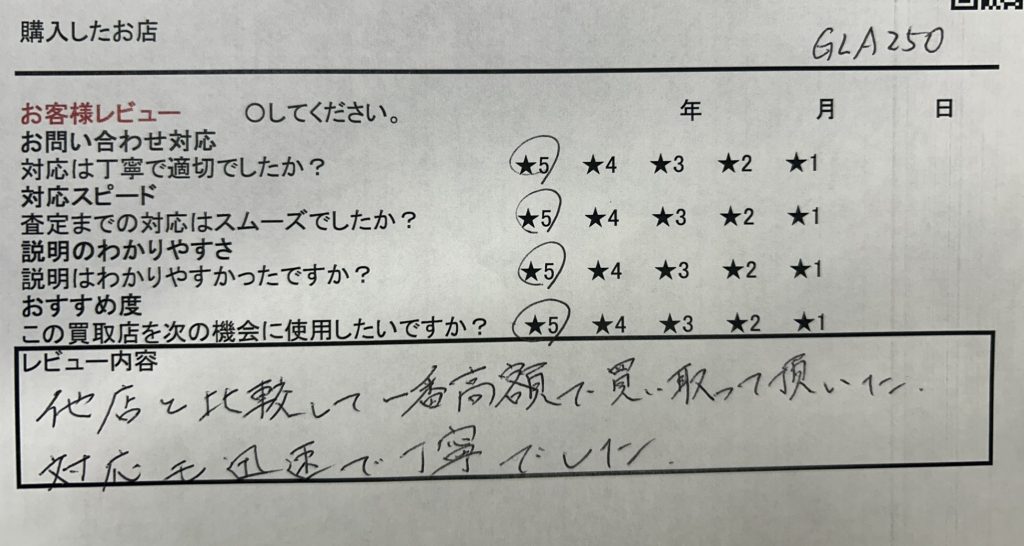 購入したお店
GLA250
お客様レビュー 〇してください。 年 月 日
お問い合わせ対応
対応は丁寧で適切でしたか？ ★5 ★4 ★3 ★2 ★1
対応スピード
査定までの対応はスムーズでしたか？ ★5 ★4 ★3 ★2 ★1
説明のわかりやすさ
説明はわかりやすかったですか？ ★5 ★4 ★3 ★2 ★1
おすすめ度
この買取店を次の機会に使用したいですか？ ★5 ★4 ★3 ★2 ★1
レビュー内容
他店と比較して一番高額で買い取って頂いた.
対応も迅速で丁寧でした.